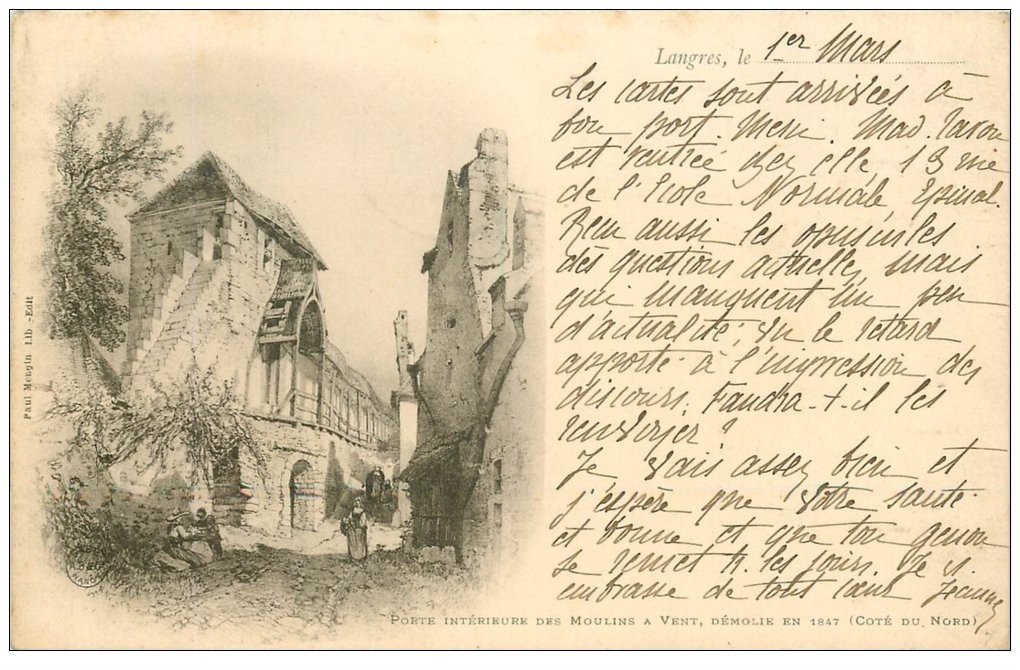 Langres, le 1er Mars
Les cartes sont arrivées à
bon port. Merci. Mad.
est rentrée chez elle, 13 rue
de l'Ecole Normale, Epinal.
Reçu aussi les opuscules
des questions actuelles, mais
qui manquent un peu
d'actualité, vu le retard
apporté à l'impression des
discours. Faudra-t-il les
renvoyer?
Je vais assez bien et
j'espère que votre santé
est bonne et que ton genou
se remet ts. les jours. Je v.
embrasse de tout cœur Jeanne
Paul Mongin Lib -Edit
PORTE INTÉRIEURE DES MOULINS A VENT, DÉMOLIE EN 1847 (COTÉ DU NORD)